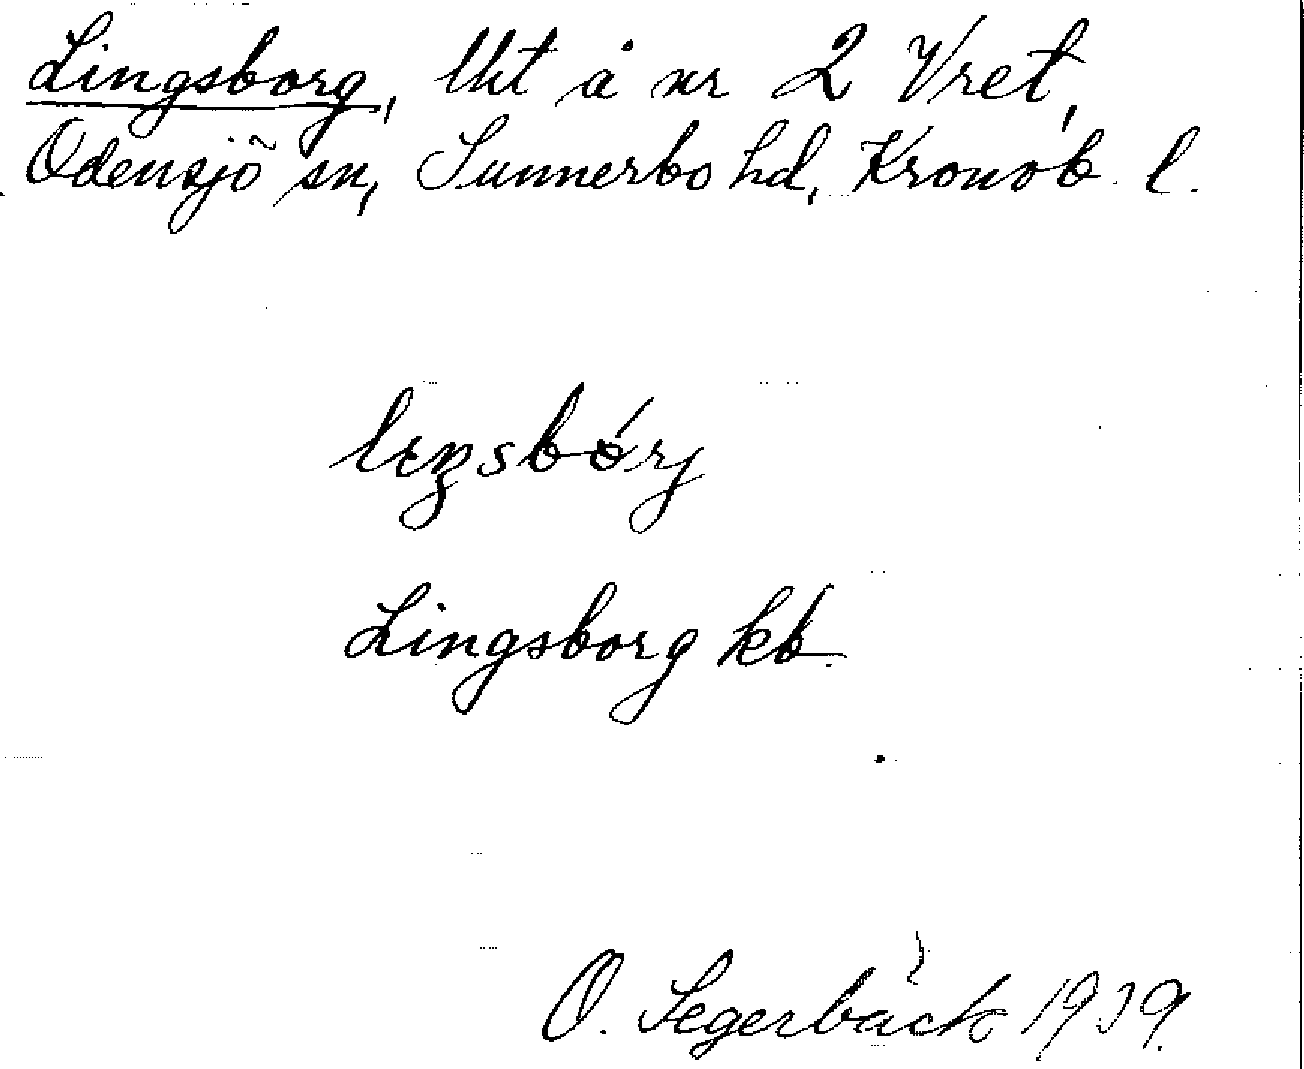 Lingsborg, lht å nr 2 Vret,
Odensjö sn, Sunnerbo hd, Kronob. l.
Lingsborg kb.
O. Segerbäck 1939.